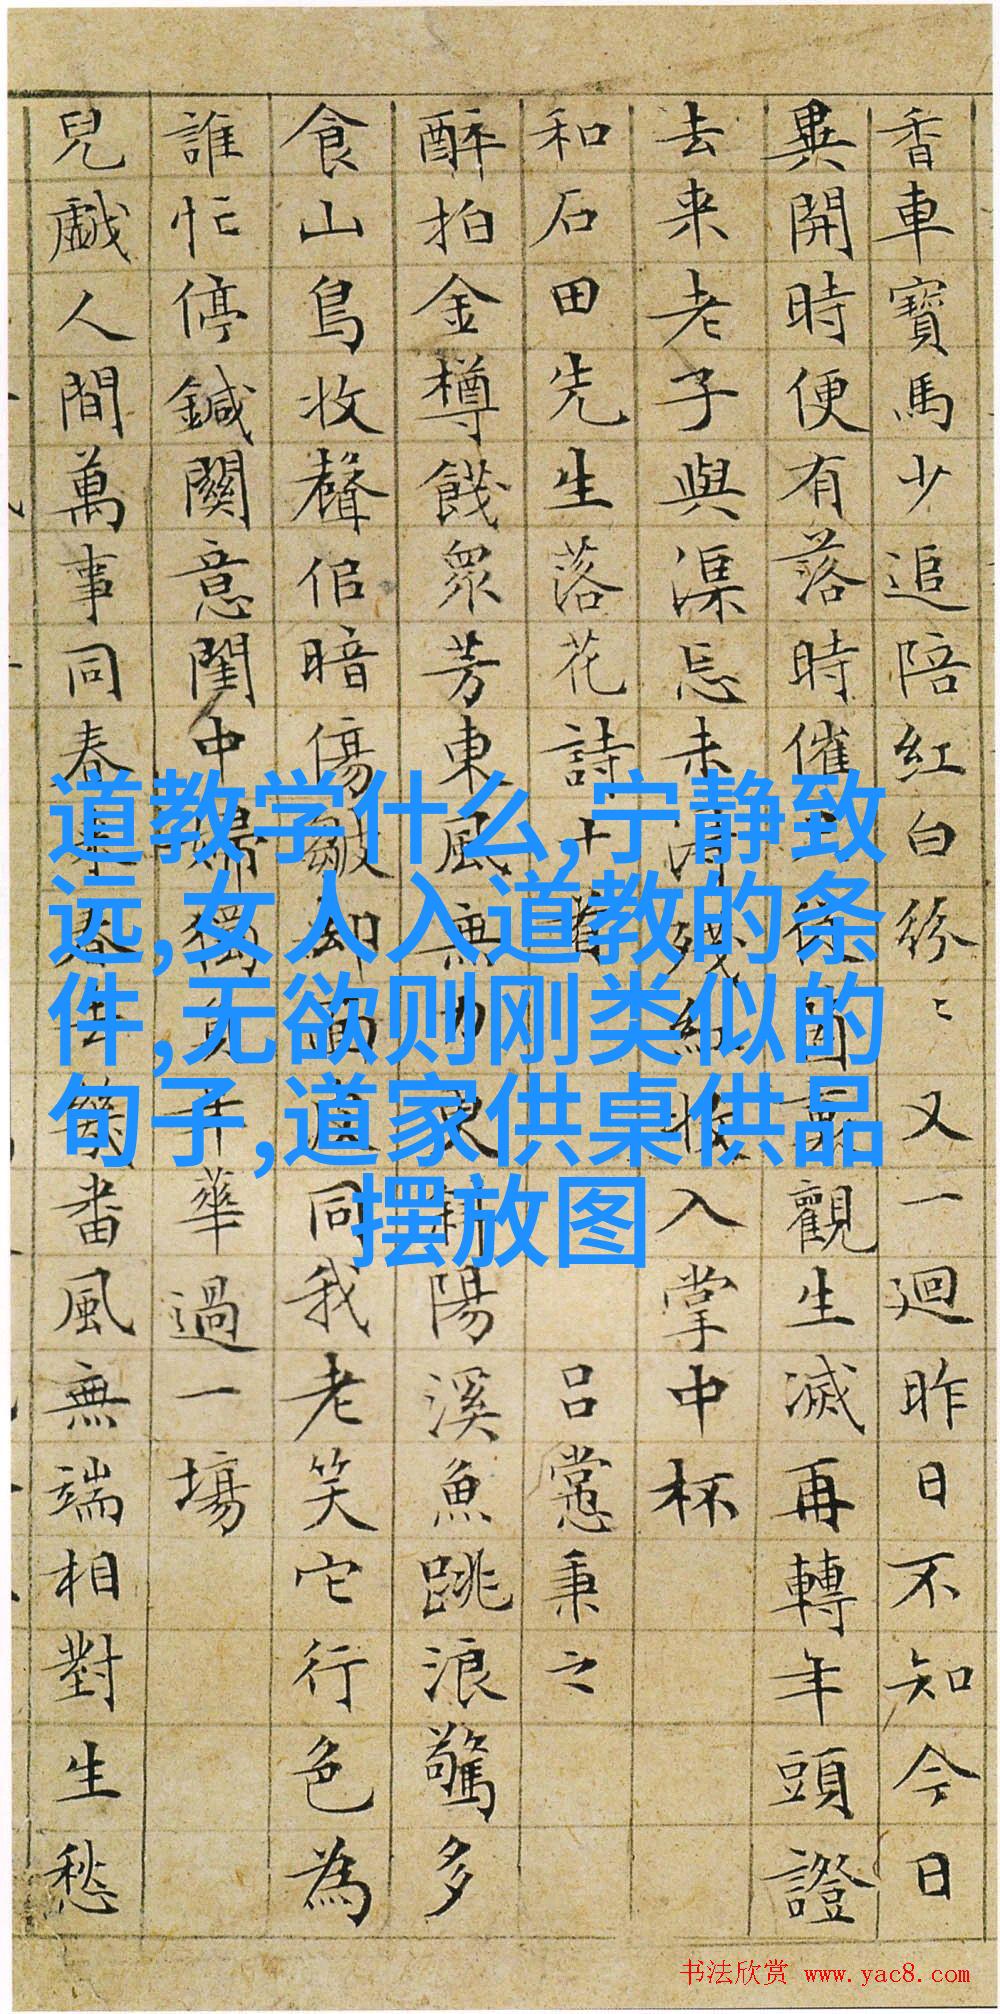 香車寶馬少追陪紅白紛〻又一迴昨日不知今日
異開時便有落時催 因 觀生滅再轉年頭證
去来老子與渠忘未 殘紅收入掌中杯
和石田先生落花詩十首 呂㦂秉之
醉拍金樽餞眾芳東風無力 陽溪魚跳浪驚多
食山鳥收聲倍暗傷皺却面 同我老笑它行色為
誰忙停鍼關意閨中婦獨 年華過一場
兒戲人間萬事同春來春去幾番風無端相對生愁
道教学什么,宁静致
远,女人入道教的条
件,无欲则刚类似的
句子,道家供桌供品
摆放图
书法欣赏 www.yac8.com